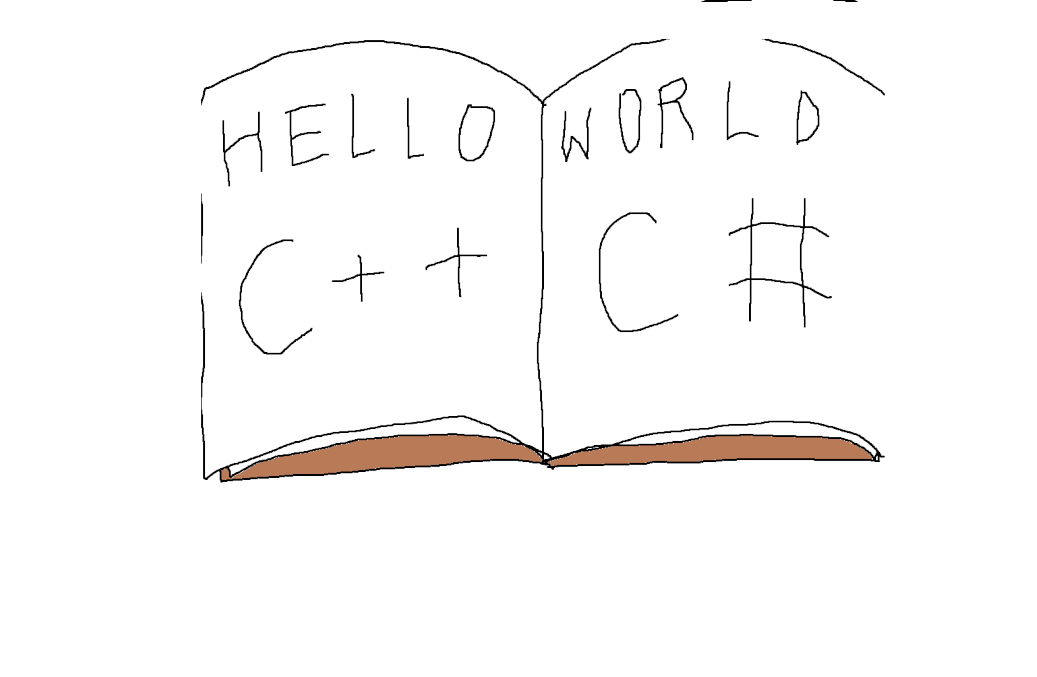 HELLO WORLD
C++ C#